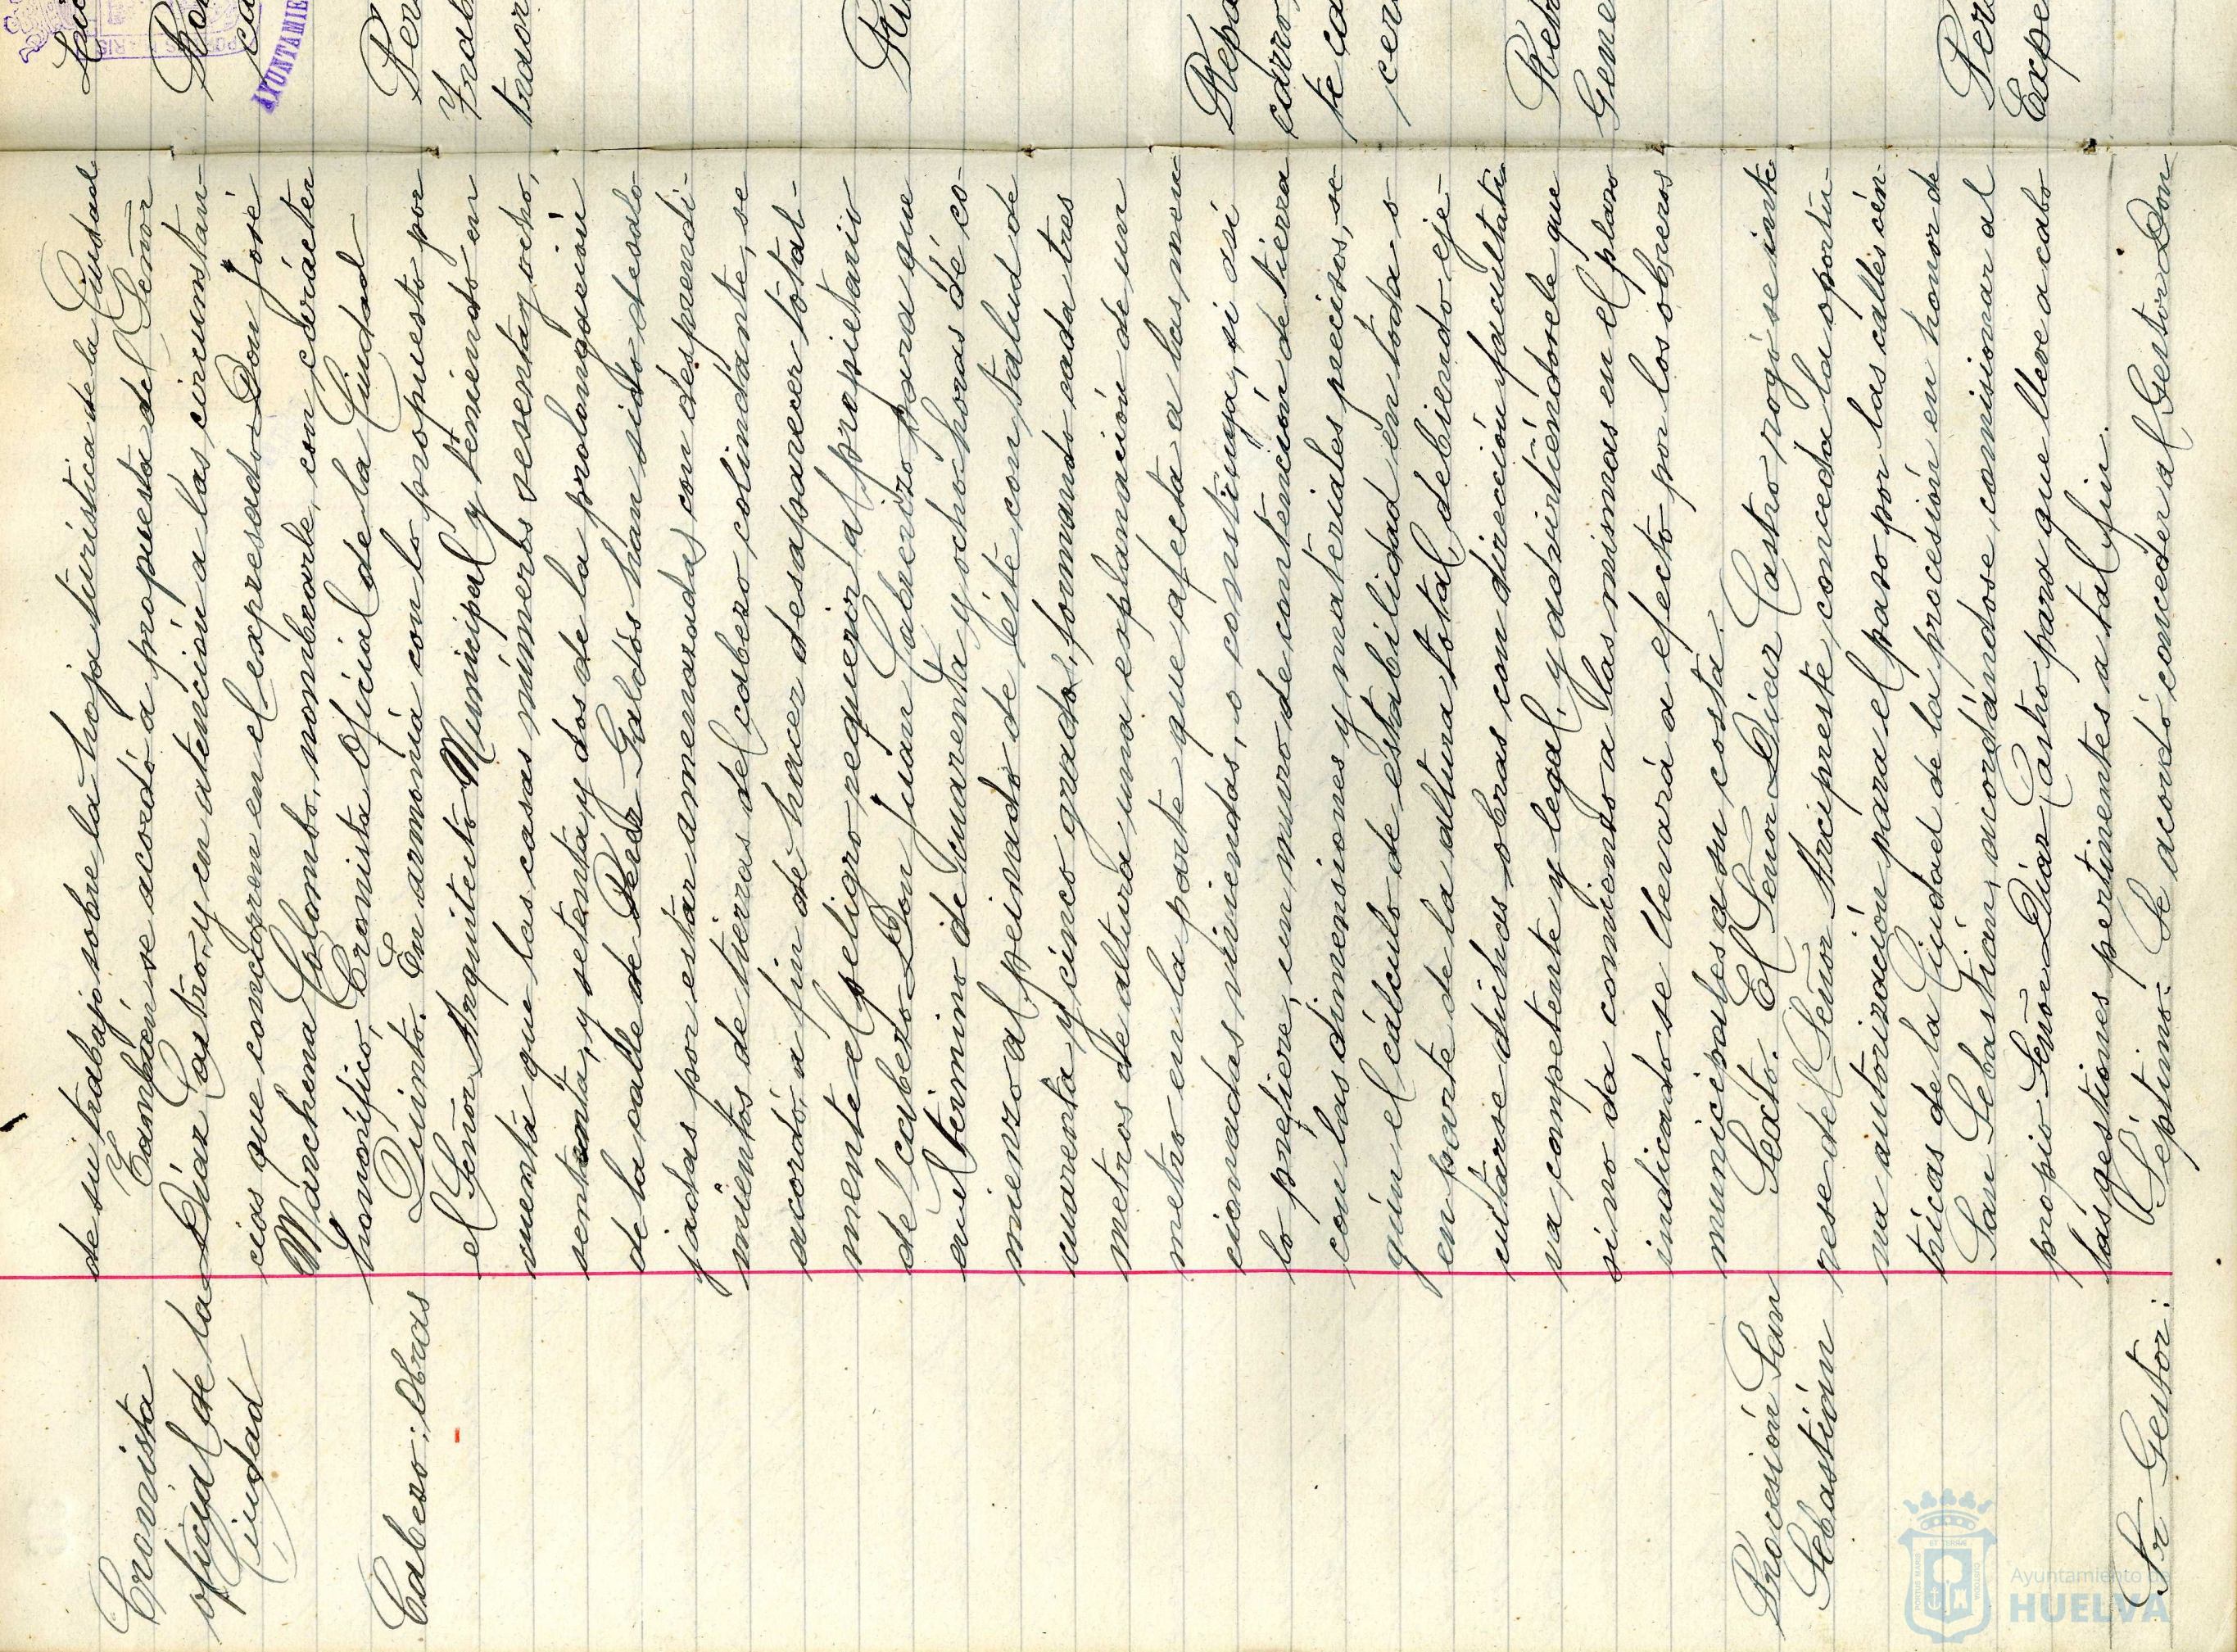 de su trabajo sobre la hoja turística de la Ciudad
Cronista
oficial de la
Ciudad
También se acordó a propuesta del Señor
Díaz Castro, y en atención a las circunstan-
cias que concurren en el expresado Don José
Manchena Colombo, nombrarle, con carácter
honorífico, Cronista Oficial de la Ciudad
Cabezo: Obras
Quinto. En armonía con lo propuesto por
el Señor Arquitecto Municipal y teniendo en
cuenta que las casas números sesenta y ocho,
sententa, y setenta y dos de la prolongación
de la calle de Perez Galdós han sido desalo
jadas por estar amenazadas con desprendi-
mientos de tierras del cabezo colindante, se
acordó, a fin de hacer desaparecer total-
mente el peligro requerir al propietario
del cabezo Don Juan Cabezizo para que
en el término de cuarenta y ocho horas dé co-
mienzo al peinado de éste con talud de
cuarenta y cinco grados, formando cada tres
metros de altura una explanación de un
metro en la parte que afecta a las men
cionadas viviendas, o construya, si así
lo prefiere, un muro de contención de tierra
con las dimensiones y materiales precisos, se-
gún el cálculo de estabilidad en toda o
en parte de la altura total, debiendo eje-
cutarse dichas obras con dirección facultati
va competente y legal, y advirtiéndosele que
si no da comienzo a las mismas en el plazo
indicado se llevará a efecto por los obreros
municipales a su costa.
Procesión San
Sebastián
Sexto. El Señor Díaz Castro rogó se inte
rese del Señor Arcipreste conceda la oportu-
na autorización para el paso por las calles cén-
tricas de la Ciudad de la procesión en honor de
San Sebastian, acordándose, comisionar al
propio Señor Díaz Castro para que lleve a cabo
las gestiones pertinentes a tal fin.
Sr Gestor:
Séptimo: Se acordó conceder al Gestor Don
AYUNTAMIE
Per
trador
Repa
carro,
te ca
cer
Retr
Gene
Per
Expe
Ayuntamiento de
HUELVA